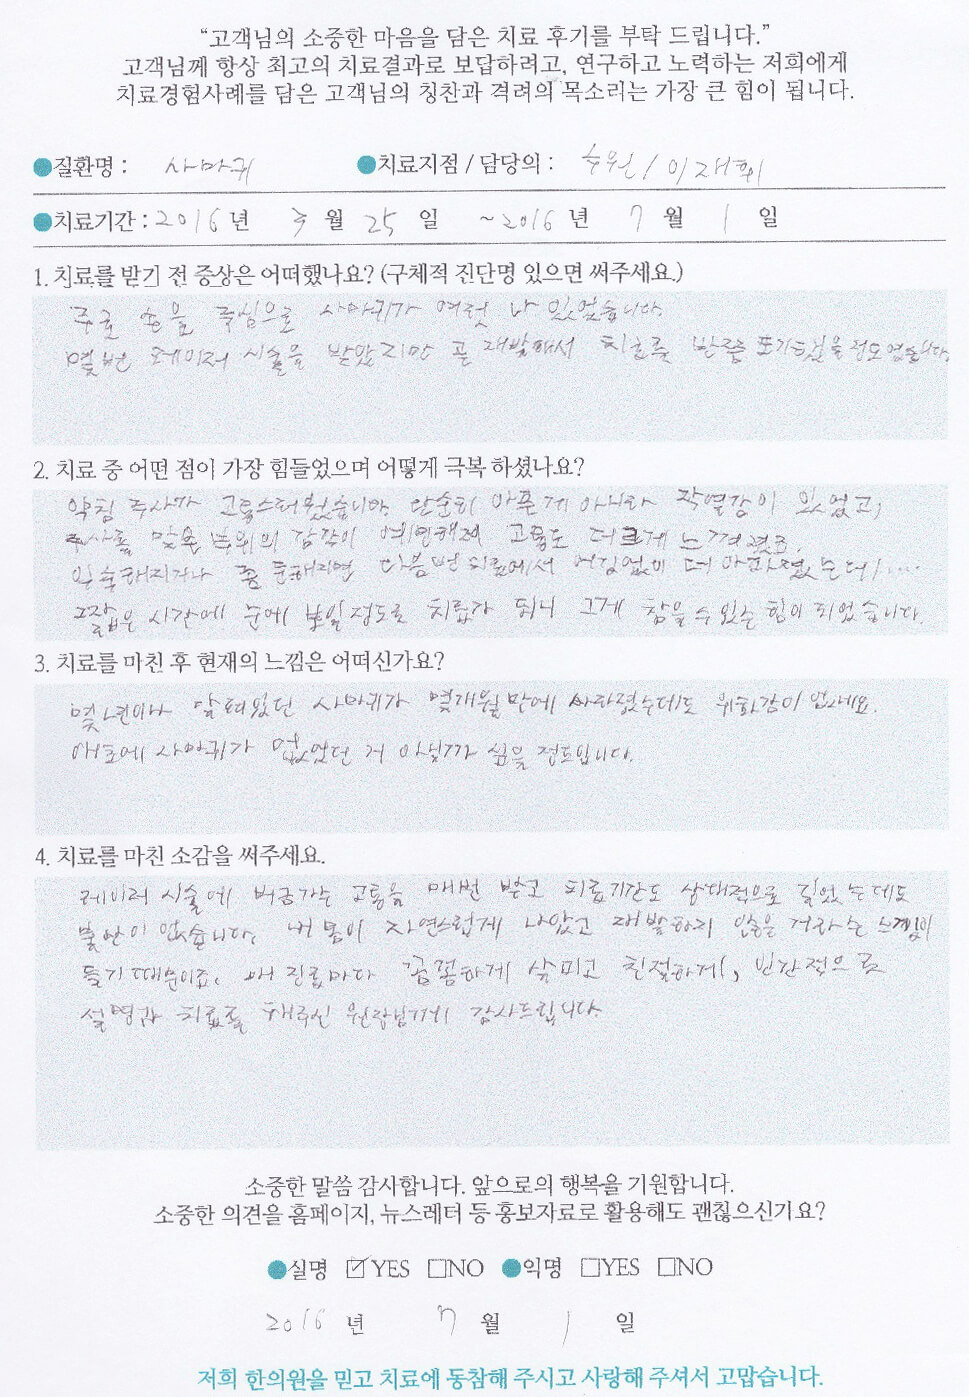 “고객님의 소중한 마음을 담은 치료 후기를 부탁 드립니다.”
고객님께 항상 최고의 치료결과로 보답하려고, 연구하고 노력하는 저희에게
치료경험사례를 담은 고객님의 칭찬과 격려의 목소리는 가장 큰 힘이 됩니다.
●질환명 : 사마귀 ●치료지점 / 담당의 : 수원 / 이재휘
●치료기간 : 2016 년 3 월 25 일 ~ 2016 년 7 월 1 일
1. 치료를 받기 전 증상은 어떠했나요? (구체적 진단명 있으면 써주세요.)
주로 손을 중심으로 사마귀가 여럿 나 있었습니다.
몇 번 레이저 시술을 받았지만 곧 재발해서 치료를 반쯤 포기했을 정도였습니다.
2. 치료 중 어떤 점이 가장 힘들었으며 어떻게 극복 하셨나요?
약침 주사가 고통스러웠습니다. 단순히 아픈게 아니라 작열감이 있었고,
주사를 맞은 부위의 감각이 예민해져 고통도 더 크게 느껴졌죠.
익숙해지거나 좀 둔해지면 다음번 치료에서 어김없이 더 아파졌는데/....
그 짧은 시간에 눈에 보일 정도로 치료가 되니 그게 참을 수 있는 힘이 되었습니다.
3. 치료를 마친 후 현재의 느낌은 어떠신가요?
몇년이나 달려있던 사마귀가 몇개월만에 사라졌는데도 위화감이 없네요.
애초에 사마귀가 없었던 거 아닐까 싶을 정도입니다.
4. 치료를 마친 소감을 써주세요.
레이저 시술에 버금가는 고통을 매번 받고 치료기간도 상대적으로 길었는데도
불만이 없습니다. 내 몸이 자연스럽게 나았고 재발하지 않을 거라는 느낌이
들기 때문이죠. 매 진료마다 꼼꼼하게 살피고 친절하게, 인간적으로
설명과 치료를 해주신 원장님께 감사드립니다.
소중한 말씀 감사합니다. 앞으로의 행복을 기원합니다.
소중한 의견을 홈페이지, 뉴스레터 등 홍보자료로 활용해도 괜찮으신기요?
●실명 ☑YES □NO ●익명 □YES □NO
2016 년 7 월 1 일
저희 한의원을 믿고 치료에 동참해 주시고 사랑해 주셔서 고맙습니다.